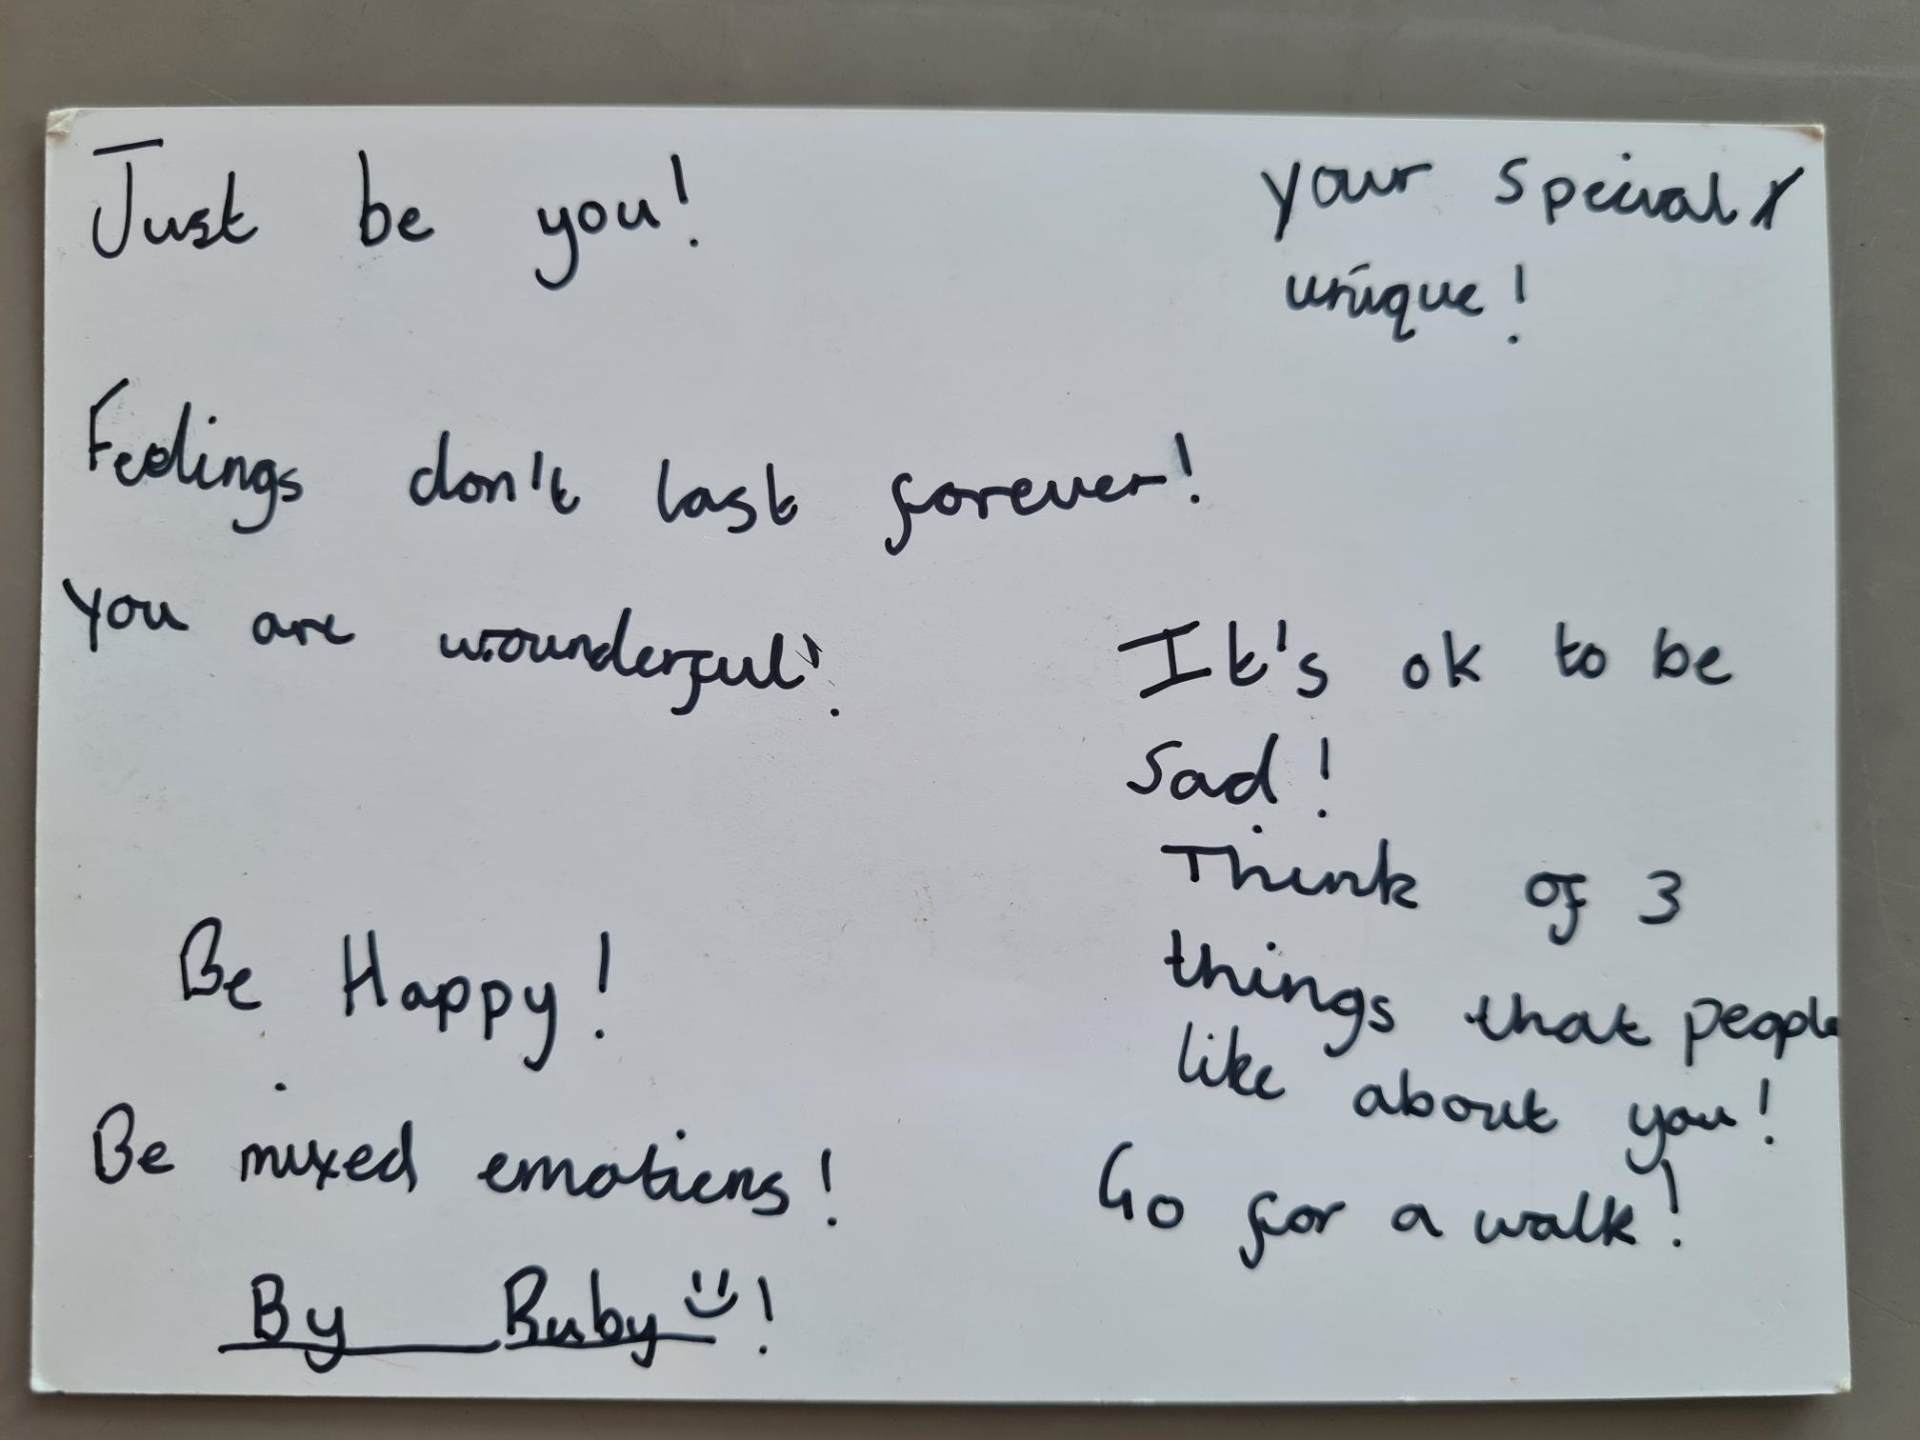 Just be you!
your special &
unique!
Feelings don't last forever!
you are wounderful!
It's ok to be
sad!
Think of 3
things that people
like about you!
Go for a walk!
Be Happy!
Be mixed emotions!
By Ruby !